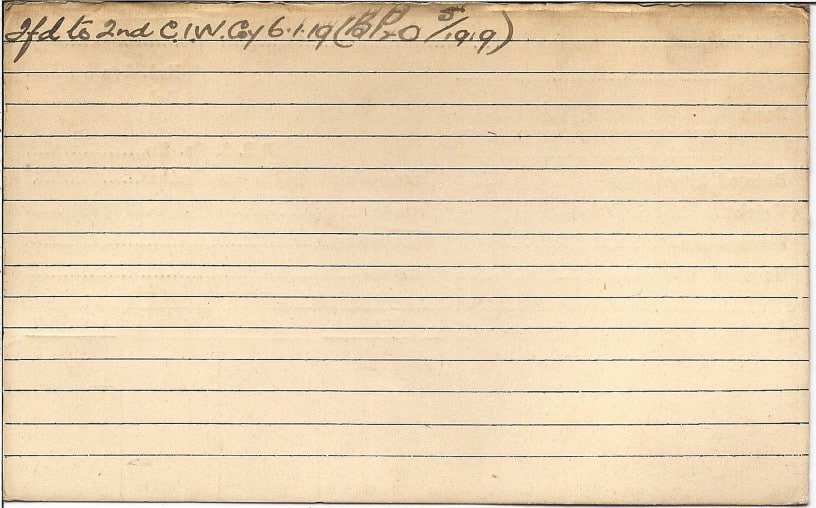 Tfd to 2nd C.I.W. Coy 6.1.19 (BPxO 5/1919)